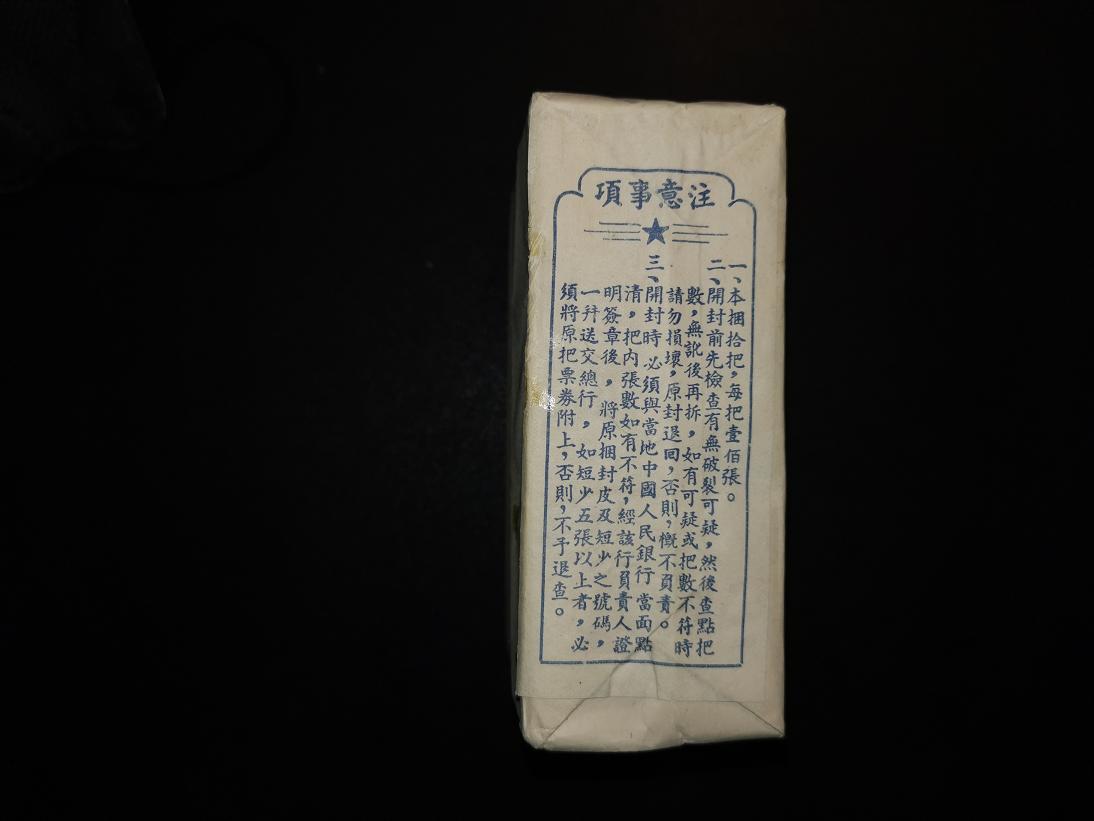 注意事項
一、本捆拾把，每把壹佰張。
二、開封前先檢查有無破裂可疑，然後查點把
數，無訛後再拆，如有可疑或把數不符時
請勿損壞，原封退回，否則，慨不負責。
三、開封時必須與當地中國人民銀行當面點
清，把内張數如有不符，經該行負責人證
明簽章後，將原捆封皮及短少之號碼，
一幷送交總行，如短少五張以上者，必
須將原把票券附上，否則，不予退查。